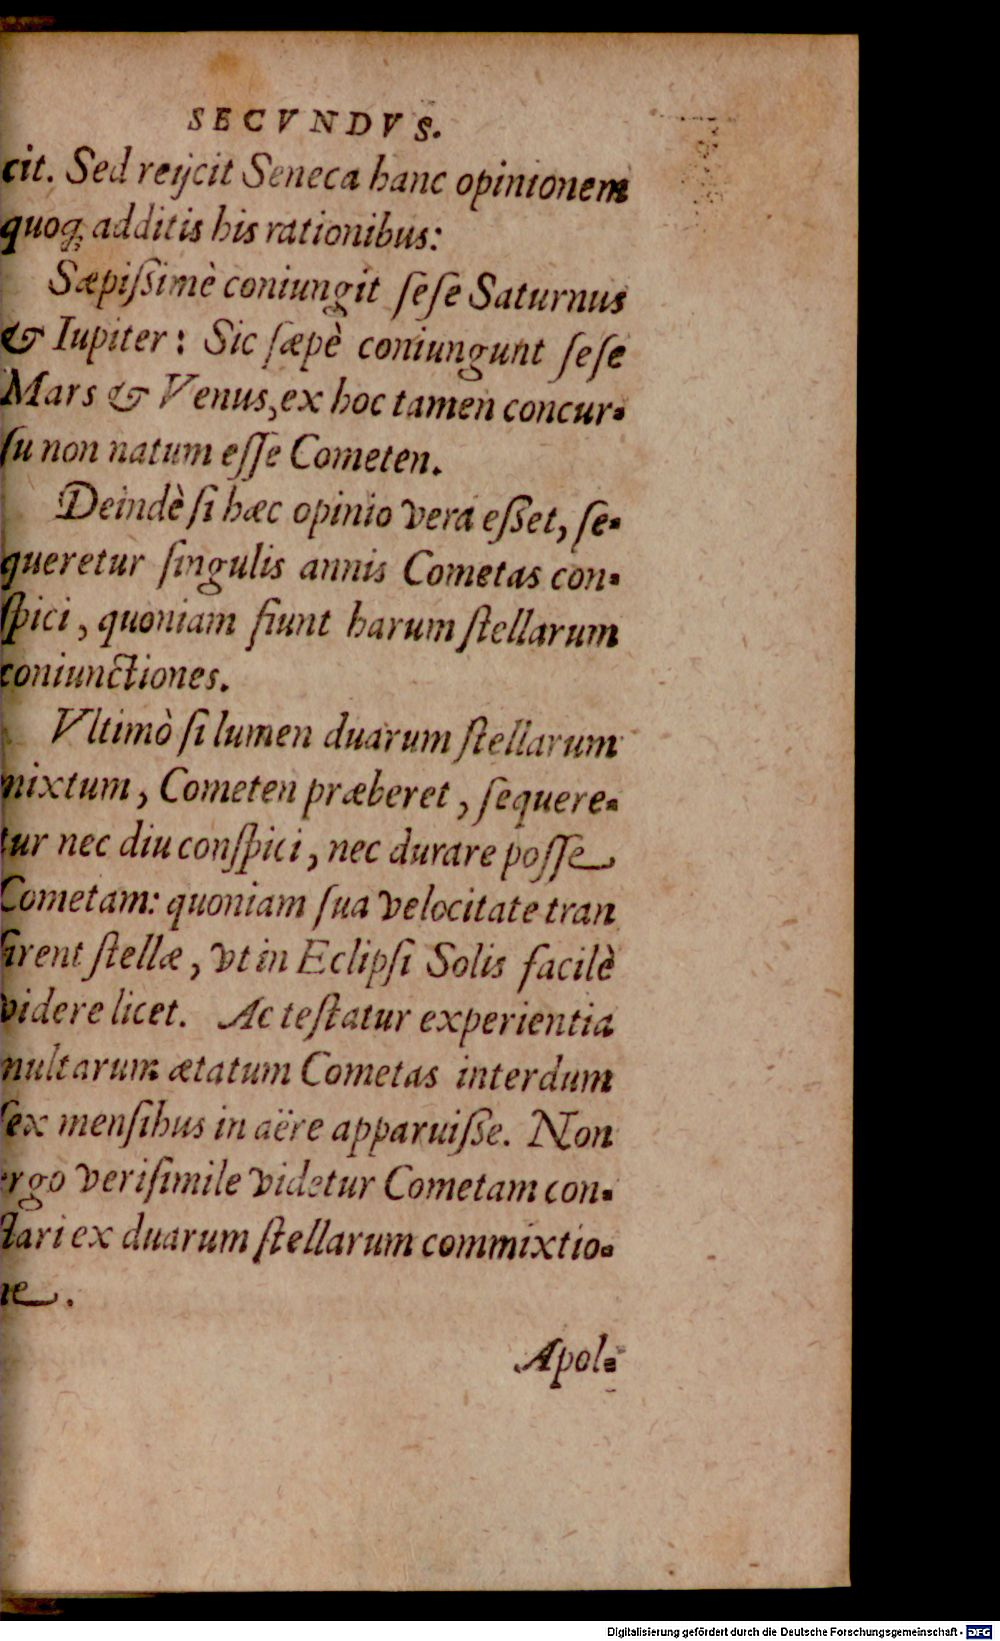 SECVNDVS.
cit. Sed reijcit Seneca hanc opinionem
quoq; additis his rationibus:
Sæpißimè coniungit ſeſe Saturnus
& Iupiter: Sic ſæpè coniungunt ſeſe
Mars & Venus, ex hoc tamen concur-
ſu non natum eſſe Cometen.
Deindè ſi hæc opinio vera eßet, ſe-
queretur ſingulis annis Cometas con-
ſpici, quoniam fiunt harum ſtellarum
coniunctiones.
Vltimò ſi lumen duarum ſtellarum
mixtum, Cometen præberet, ſequere-
tur nec diu conſpici, nec durare poſſe
Cometam: quoniam ſua velocitate tran
ſirent ſtellæ, vt in Eclipſi Solis facilè
videre licet. Ac teſtatur experientia
multarum ætatum Cometas interdum
ſex menſibus in aëre apparuiße. Non
ergo veriſimile videtur Cometam con-
ſtari ex duarum ſtellarum commixtio-
ne.
Apol-
Digitalisierung gefördert durch die Deutsche Forschungsgemeinschaft - DFG